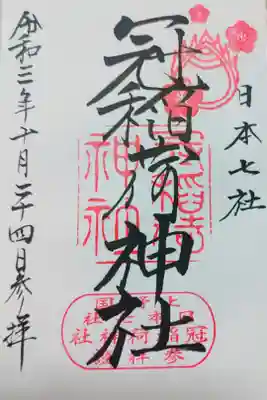 日本七社
冠稲荷神社
令和三年十月二十四日参拝
冠稲荷
神社
上野国
日本七社
冠稲荷神社